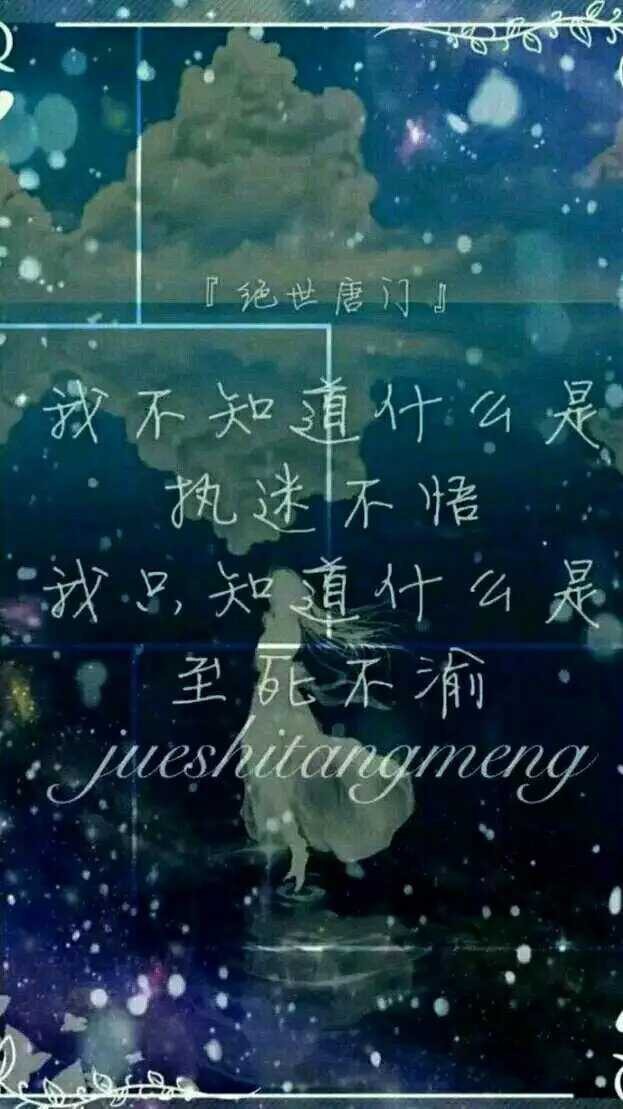 『绝世唐门』
我不知道什么是
执迷不悟
我只知道什么是
至死不渝
jueshitangmeng